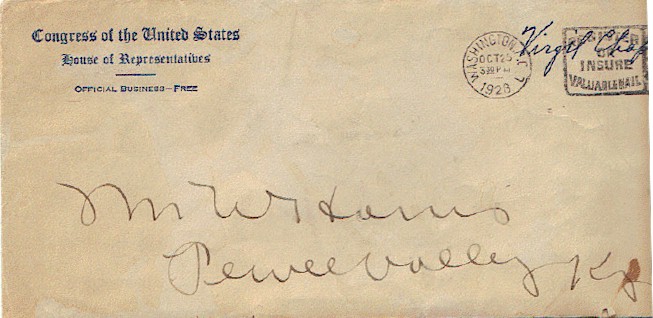 Congress of the United States
House of Representatives
OFFICIAL BUSINESS—FREE
WASHINGTON, D.C.
OCT 25
3 PM
1928
Virgil Chap
REGISTER
OR
INSURE
VALUABLE MAIL
Mr W T Harris
Pewee Valley Ky